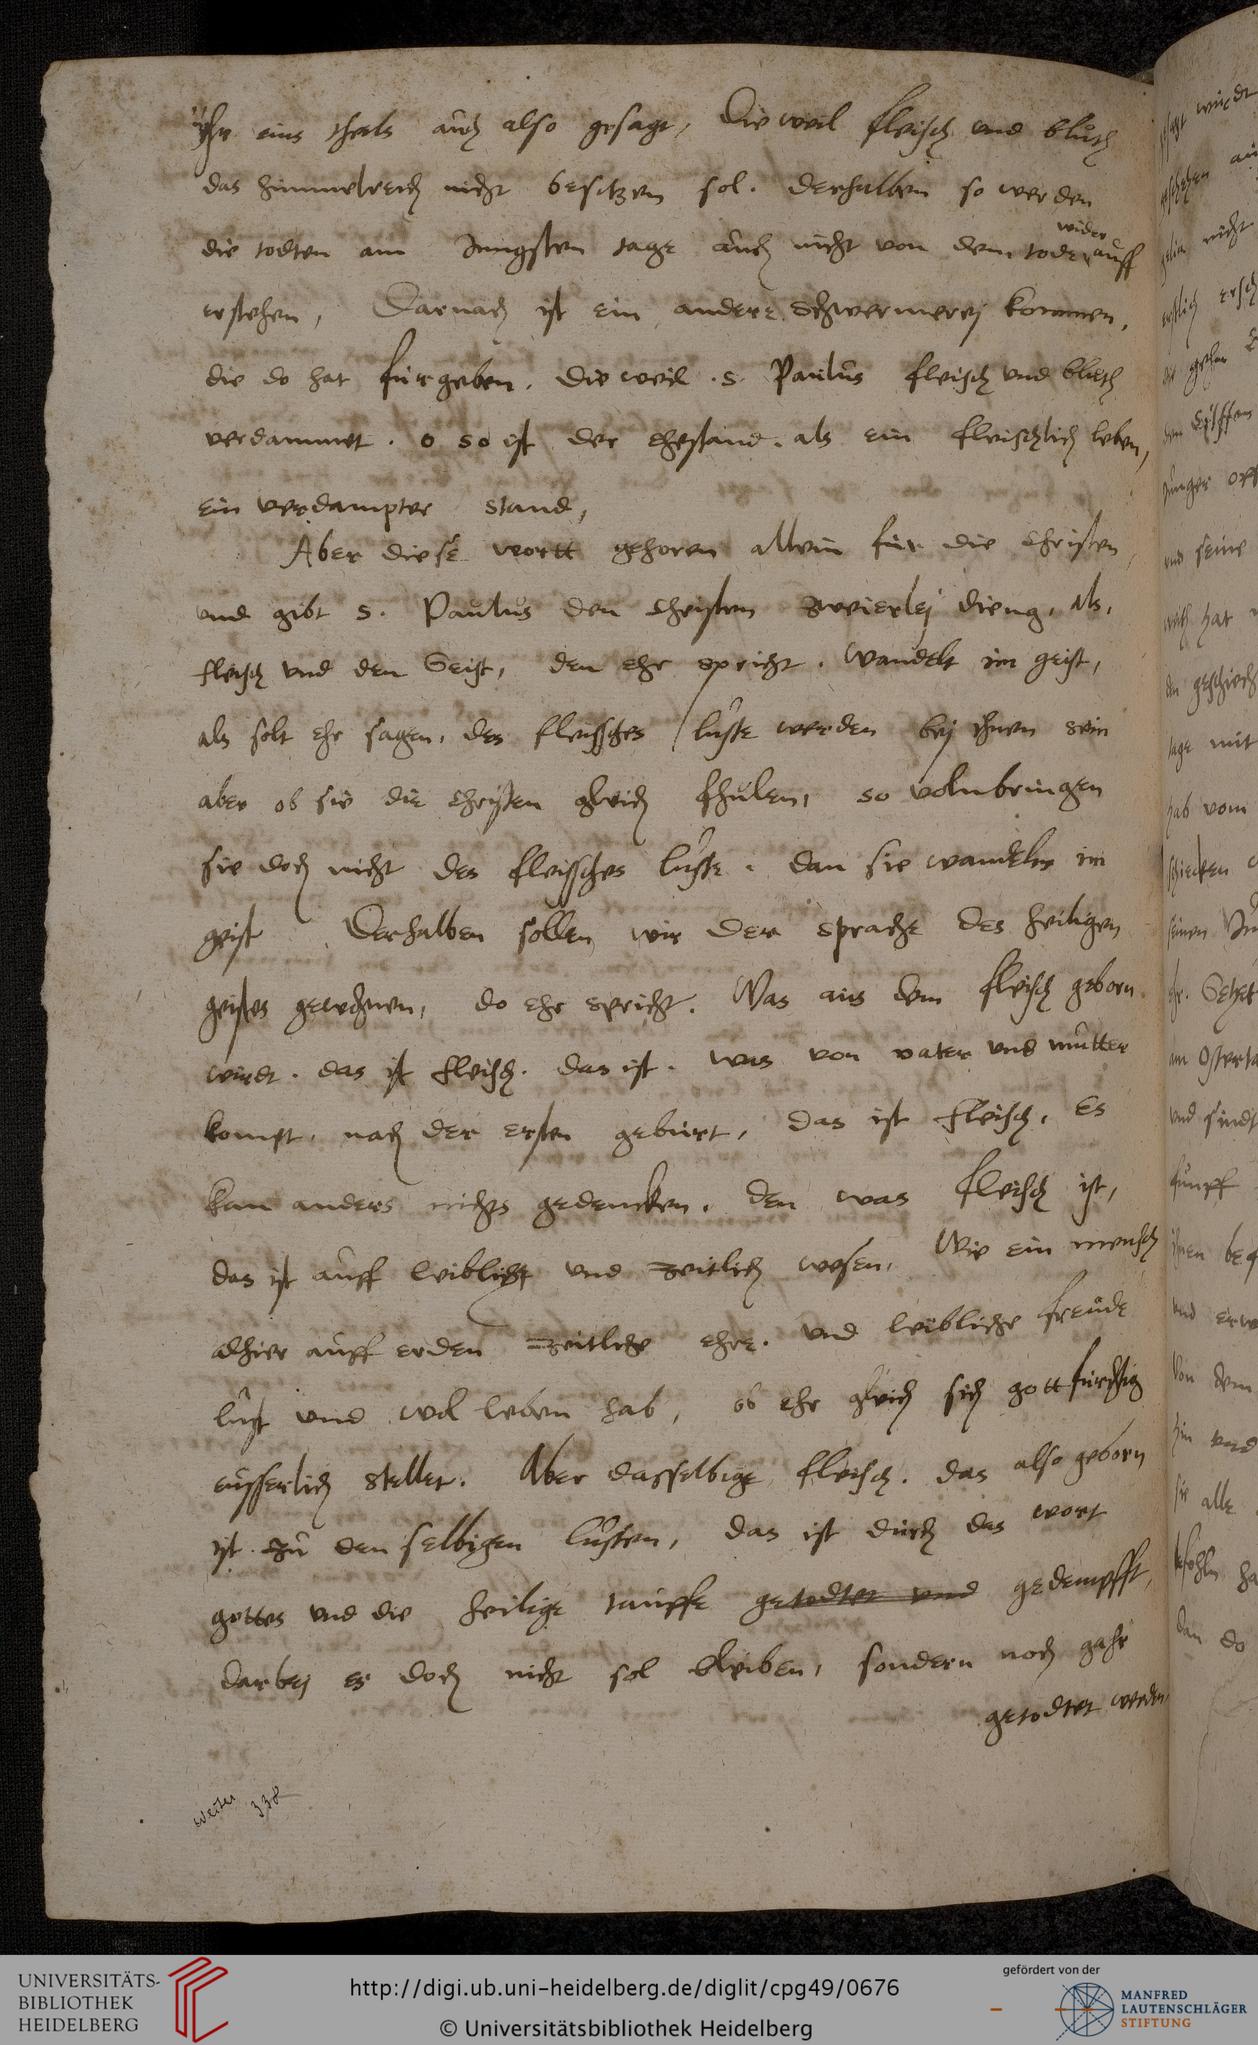 Ihr eins theils auch also gesagt, Die weil fleisch und bluth
das himmelreich nicht besitzen sol. derhalben so werden
die todten am Jungsten tage auch nicht von dem tode wider auff
erstehen, Darnach ist ein andere schwermerej kommen,
die do hat fürgeben. die weil .s. Paulus fleisch und bluth
verdammet. o so ist der ehestand. als ein fleischlich leben,
ein verdampter stand,
Aber diese wortt gehoren allein für die Christen,
und gibt s. Paulus den Christen zweierlej dieng, als,
fleisch und den Geist, den ehr spricht. Wandelt im geist,
als solt ehr sagen, des fleisches luste werden bej ihnen sein
aber ob sie die Christen gleich fhulen, so volnbringen
sie doch nicht des fleisches luste. dan sie wandeln im
geist Derhalben sollen wir der sprache des heiligen
geistes gewohnen, do ehr spricht. Was aus dem fleisch geborn
wirdt. das ist fleisch. das ist. was von vater und mutter
kompt, nach der ersten geburt, das ist fleisch. Es
kan anders nichts gedencken. den was fleisch ist,
das ist auff leiblicht und zeitlich wesen, Wie ein mensch
alhier auff erden zeitliche ehre. und leibliche freude
lust und wol leben hab, ob ehr gleich sich gottfürchtig
eusserlich stellet. Aber dasselbige fleisch. das also geborn
ist. zu den selbigen lusten, das ist durch das wort
gottes und die heilige tauffe getodtet und gedempfft,
darbej es doch nicht sol bleiben, sondern noch gahr
getodtet werden
weiter 338
UNIVERSITÄTS-
BIBLIOTHEK
HEIDELBERG
http://digi.ub.uni-heidelberg.de/diglit/cpg49/0676
© Universitätsbibliothek Heidelberg
gefördert von der
MANFRED
LAUTENSCHLÄGER
STIFTUNG